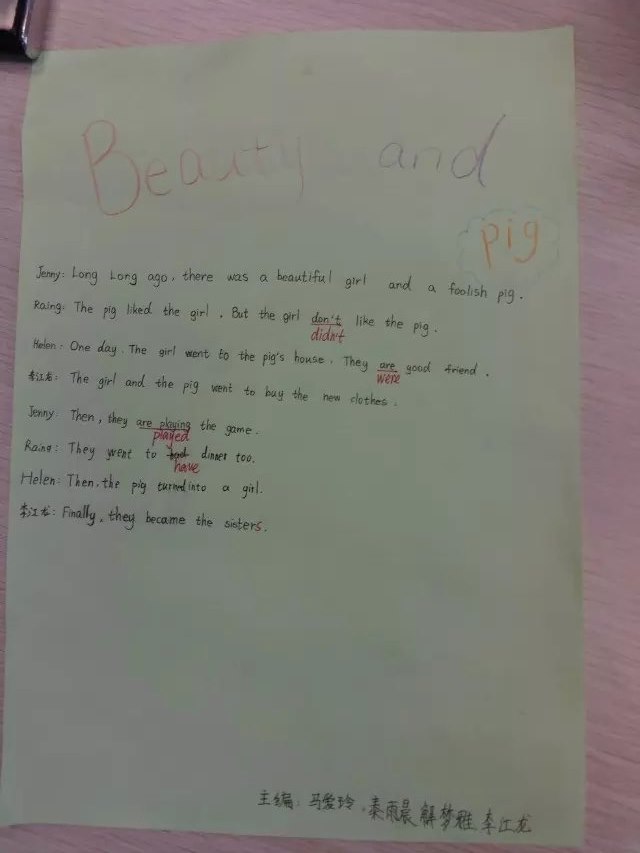 Beauty and
pig
Jenny: Long Long ago, there was a beautiful girl and a foolish pig.
Raing: The pig liked the girl. But the girl don't like the pig.
didn't
Helen: One day. The girl went to the pig's house. They are good friend.
were
李江龙: The girl and the pig went to buy the new clothes.
Jenny: Then, they are playing the game.
played
Raing: They went to had dinner too.
have
Helen: Then, the pig turned into a girl.
李江龙: Finally, they became the sisters.
主编: 马爱玲, 秦雨晨 解梦雅 李江龙